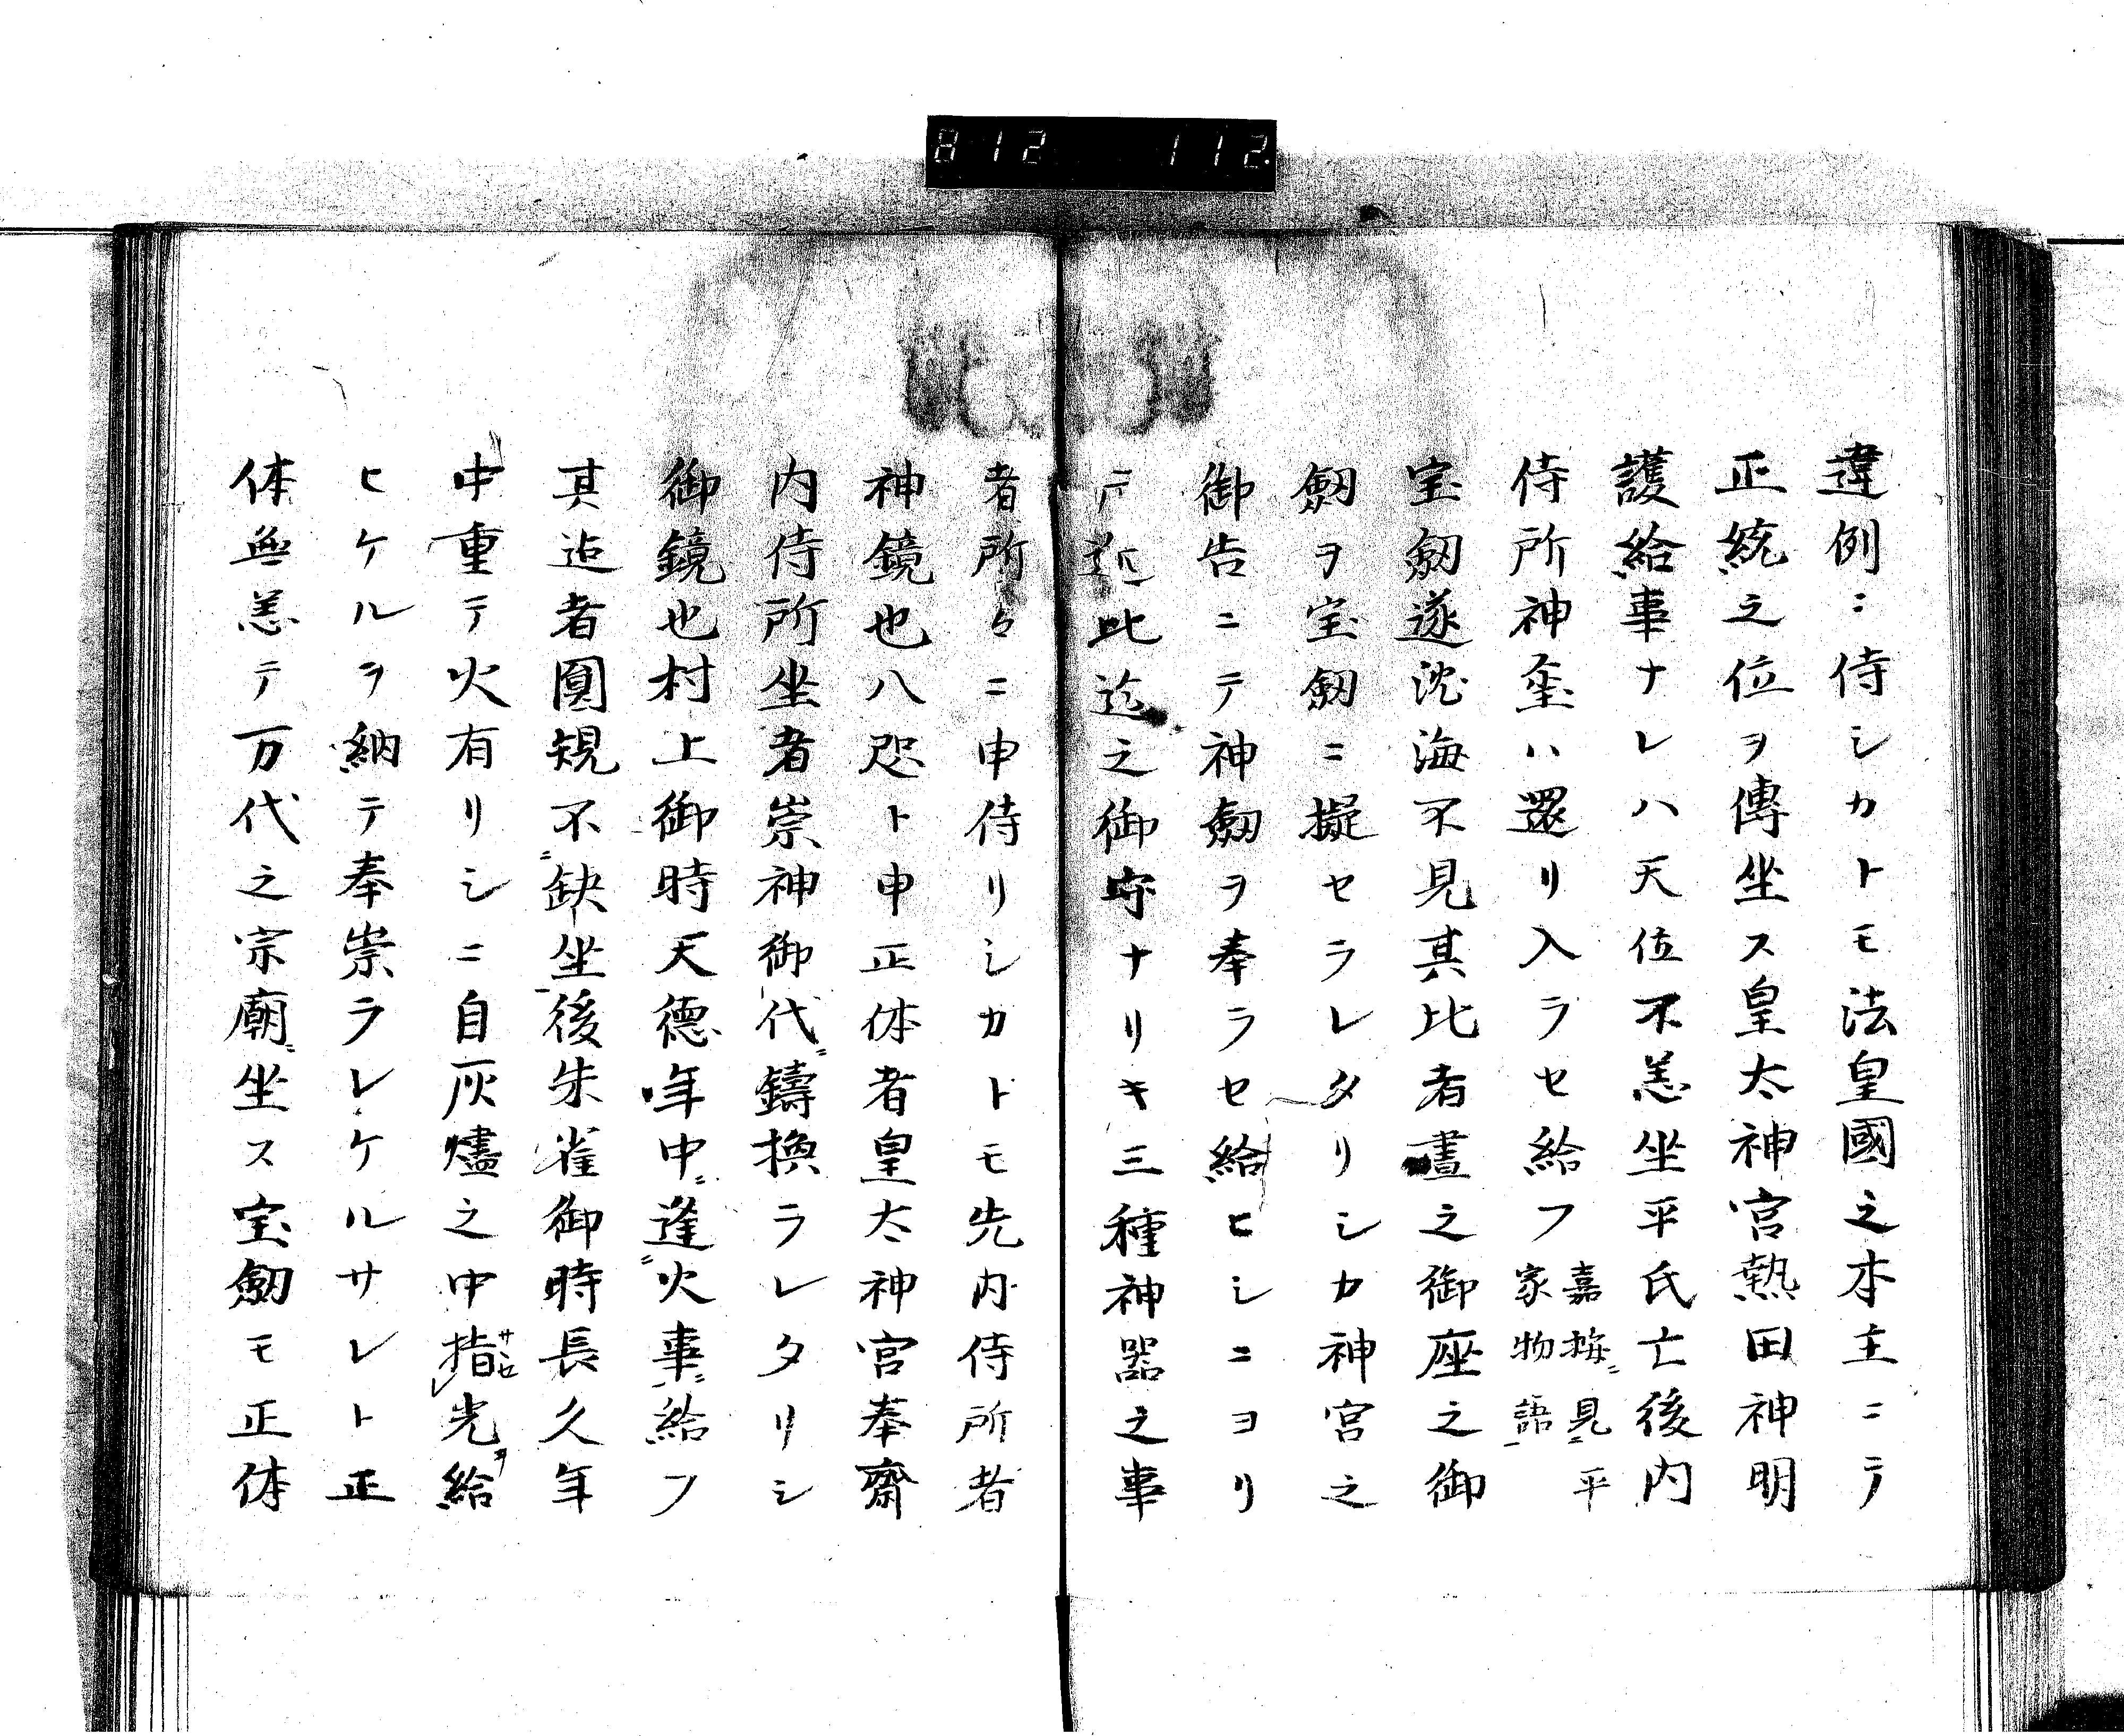 812 112.
違例ニ侍シカトモ法皇國之本主ニテ
正統之位ヲ傳坐ス皇太神宮熱田神明
護給事ナレハ天位不恙坐平氏亡後内
侍所神璽ハ還リ入ラセ給フ
嘉梅ニ見ニ平
家物語
宝剱遂沈海不見其比者晝之御座之御
剱ヲ宝剱ニ擬セラレタリシカ神宮之
御告ニテ神剱ヲ奉ラセ給ヒシニヨリ
テ近比迄之御守ナリキ三種神器之事
者所々ニ申侍リシカトモ先内侍所者
神鏡也八咫ト申正体者皇太神宮奉齋
内侍所坐者崇神御代ニ鑄換ラレタリシ
御鏡也村上御時天徳年中ニ逢ニ火事ニ給フ
其迠者圓規不ニ缺坐後朱雀御時長久年
中重テ火有リシニ自灰燼之中指光ヲ給
サシセ
ヒケルヲ納テ奉崇ラレケルサレト正
体無恙テ万代之宗廟ニ坐ス宝剱モ正体